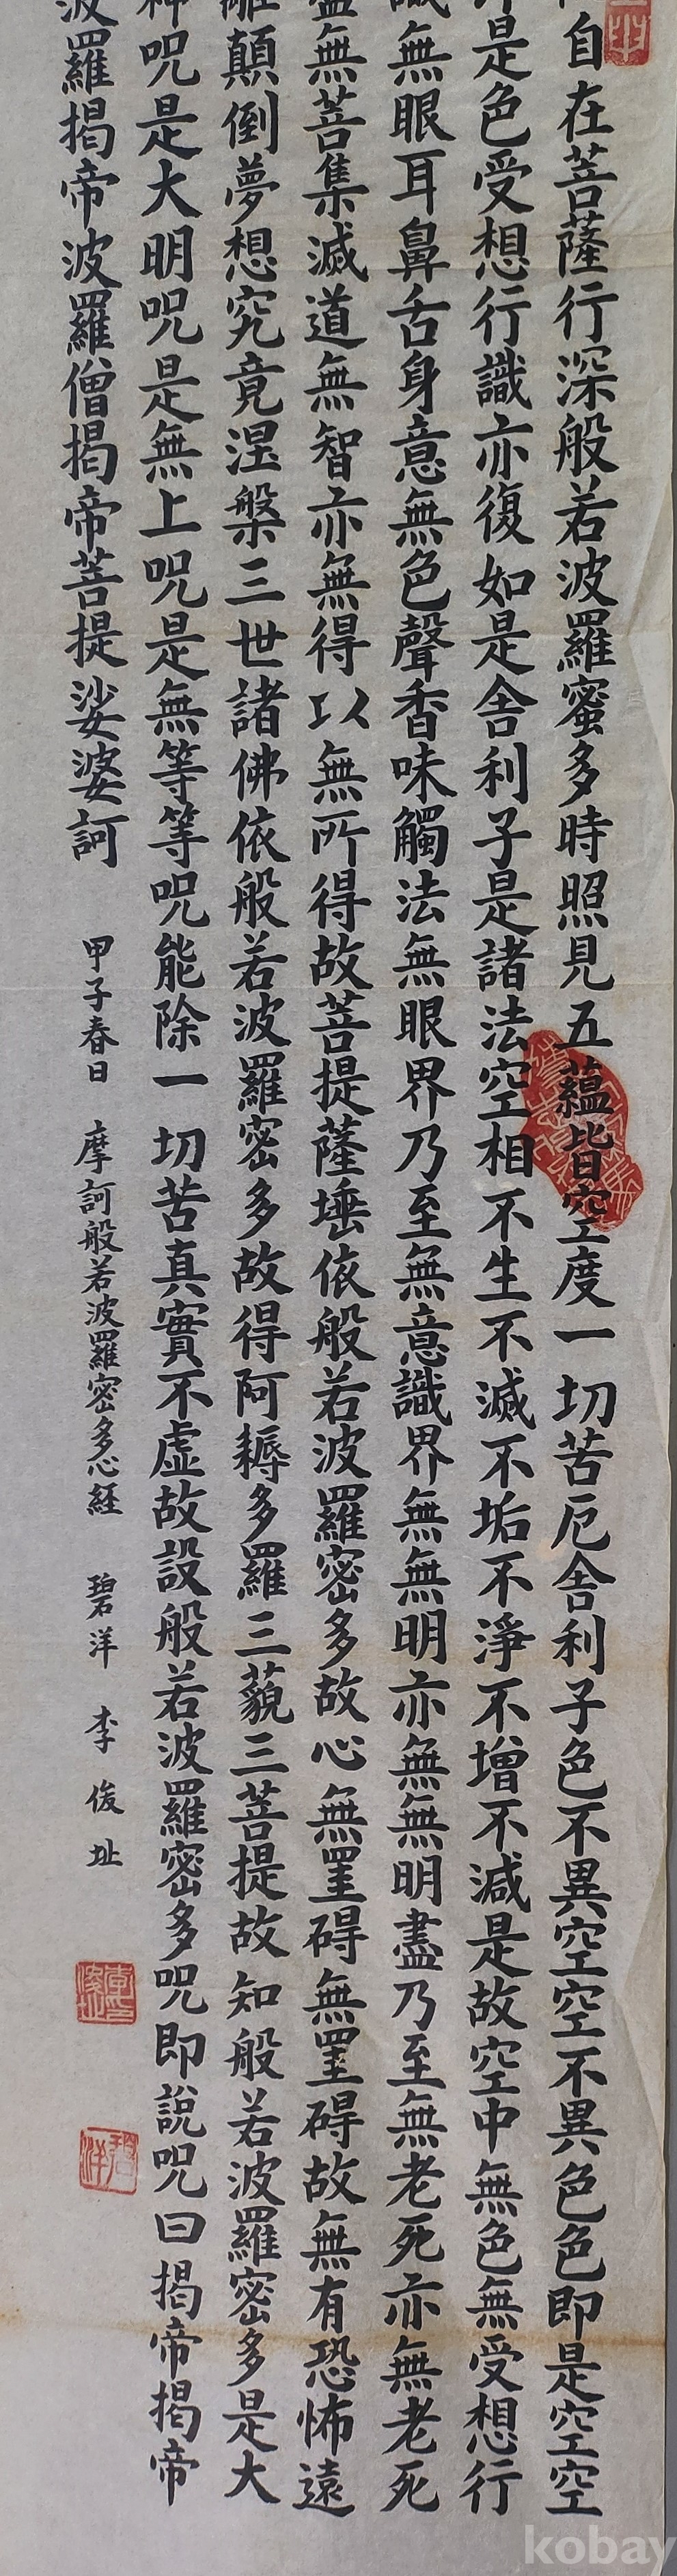 自在菩薩行深般若波羅蜜多時照見五蘊皆空度一切苦厄舍利子色不異空空不異色色即是空空
是色受想行識亦復如是舍利子是諸法空相不生不滅不垢不淨不增不減是故空中無色無受想行
無眼耳鼻舌身意無色聲香味觸法無眼界乃至無意識界無無明亦無無明盡乃至無老死亦無老死
盡無菩集滅道無智亦無得以無所得故菩提薩埵依般若波羅密多故心無罣碍無罣碍故無有恐怖遠
離顛倒夢想究竟涅槃三世諸佛依般若波羅密多故得阿耨多羅三藐三菩提故知般若波羅密多是大
神呪是大明呪是無上呪是無等等呪能除一切苦真實不虛故設般若波羅密多呪即說呪曰揭帝揭帝
波羅揭帝波羅僧揭帝菩提娑婆訶
甲子春日 摩訶般若波羅密多心経 碧洋 李俊址
碧洋
kobay